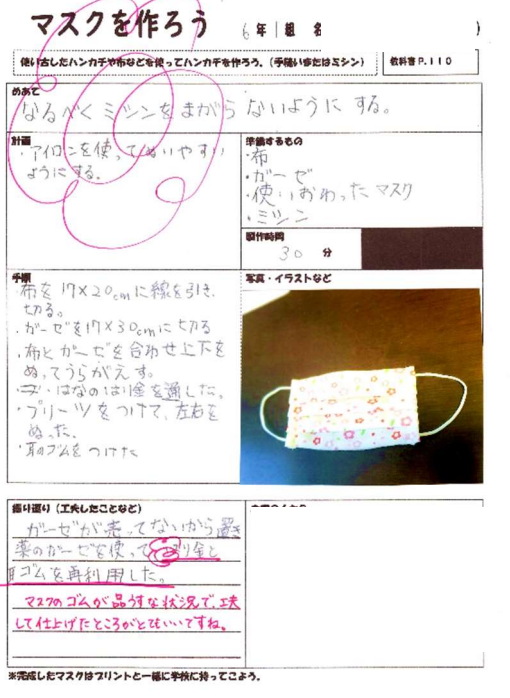 マスクを作ろう 6年1組 名
使い古したハンカチや布などを使ってハンカチを作ろう。(手縫いまたはミシン)
教科書P.110
めあて
なるべくミシンをまがらないようにする。
計画
・アイロンを使ってぬいやすい
ようにする。
準備するもの
・布
・ガーゼ
・使いおわったマスク
・ミシン
製作時間
30 分
手順
布を17×20cmに線を引き、
切る。
・ガーゼを17×30cmに切る
・布とガーゼを合わせ上下を
ぬってうらがえす。
・はなのはり金を通した。
・プリーツをつけて、左右を
ぬった。
・耳のゴムをつけた
写真・イラストなど
振り返り(工夫したことなど)
ガーゼが売ってないから置き
薬のガーゼを使って はり金と
ゴムを再利用した。
マスクのゴムが品うすな状況で、工夫
して仕上げたところがとてもいいですね。
※完成したマスクはプリントと一緒に学校に持ってこよう。